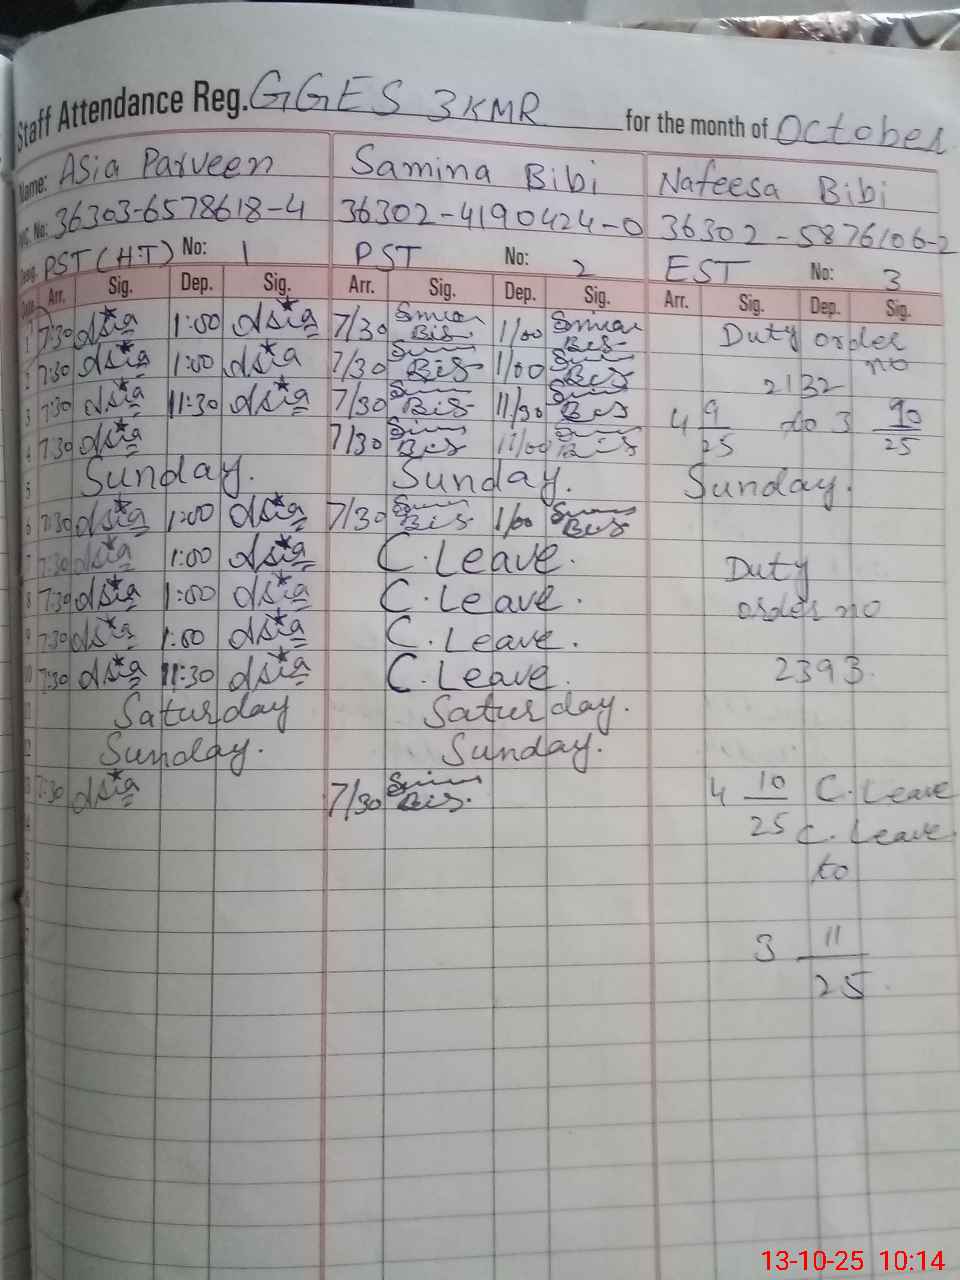 Staff Attendance Reg. GGES 3KMR for the month of October
Name: Asia Parveen Samina Bibi Nafeesa Bibi
No: 36303-6578618-4 36302-4190424-0 36302-5876106-2
PST (H.T) No: 1 PST No: 2 EST No: 3
Arr. Sig. Dep. Sig. Arr. Sig. Dep. Sig. Arr. Sig. Dep. Sig.
1 7:30 Asia 1:00 Asia 7/30 Bis 1/00 Bis Duty order
no
2 7:30 Asia 1:00 Asia 7/30 Bis 1/00 Bis 2132
3 7:30 Asia 11:30 Asia 7/30 Bis 11/30 Bis 4 9/25 to 3 10/25
4 7:30 Asia 7/30 Bis Bis
5 Sunday. Sunday. Sunday.
6 7:30 Asia 1:00 Asia 7/30 Bis 1/00 Bis
7 7:30 Asia 1:00 Asia C.Leave. Duty
8 7:30 Asia 1:00 Asia C.Leave. order no
9 7:30 Asia 1:00 Asia C.Leave.
10 7:30 Asia 11:30 Asia C.Leave. 2393.
11 Saturday Saturday.
12 Sunday. Sunday.
13 7:30 Asia 7/30 Bis. 4 10/25 C.Leave
C.Leave
to
3 11/25
13-10-25 10:14